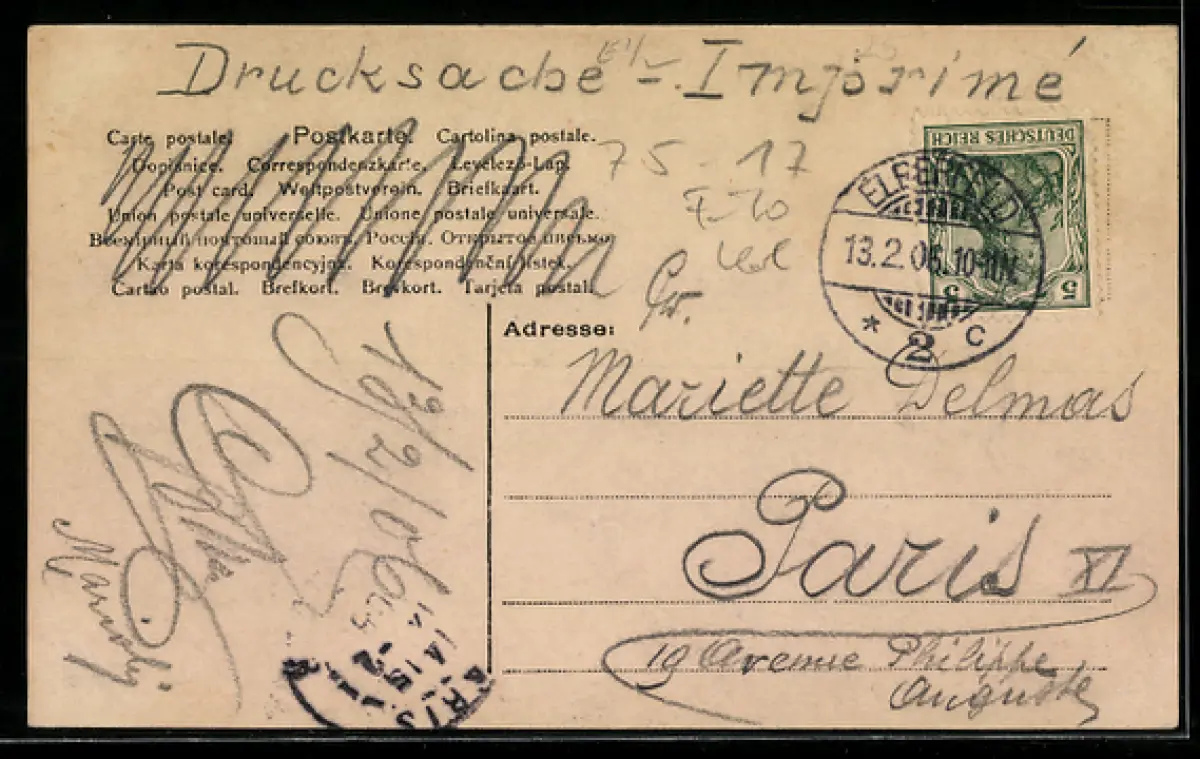 Drucksache - Imprimé
Carte postale. Postkarte. Cartolina postale.
Dopisnice. Correspondenzkarte. Levelező-Lap.
Post card. Weltpostverein. Briefkaart.
Union postale universelle. Unione postale universale.
Всемірный почтовый союзъ. Россія. Открытое письмо
Karta korespondencyjna. Korespondenční listek.
Cartão postal. Brefkort. Brevkort. Tarjeta postal.
75-17
DEUTSCHES REICH
5 5
ELBERFELD
13.2.06. 10-11N.
* 2 c
Adresse:
Mariette Delmas
Paris XI
19 Avenue Philippe
Auguste
13/2/06